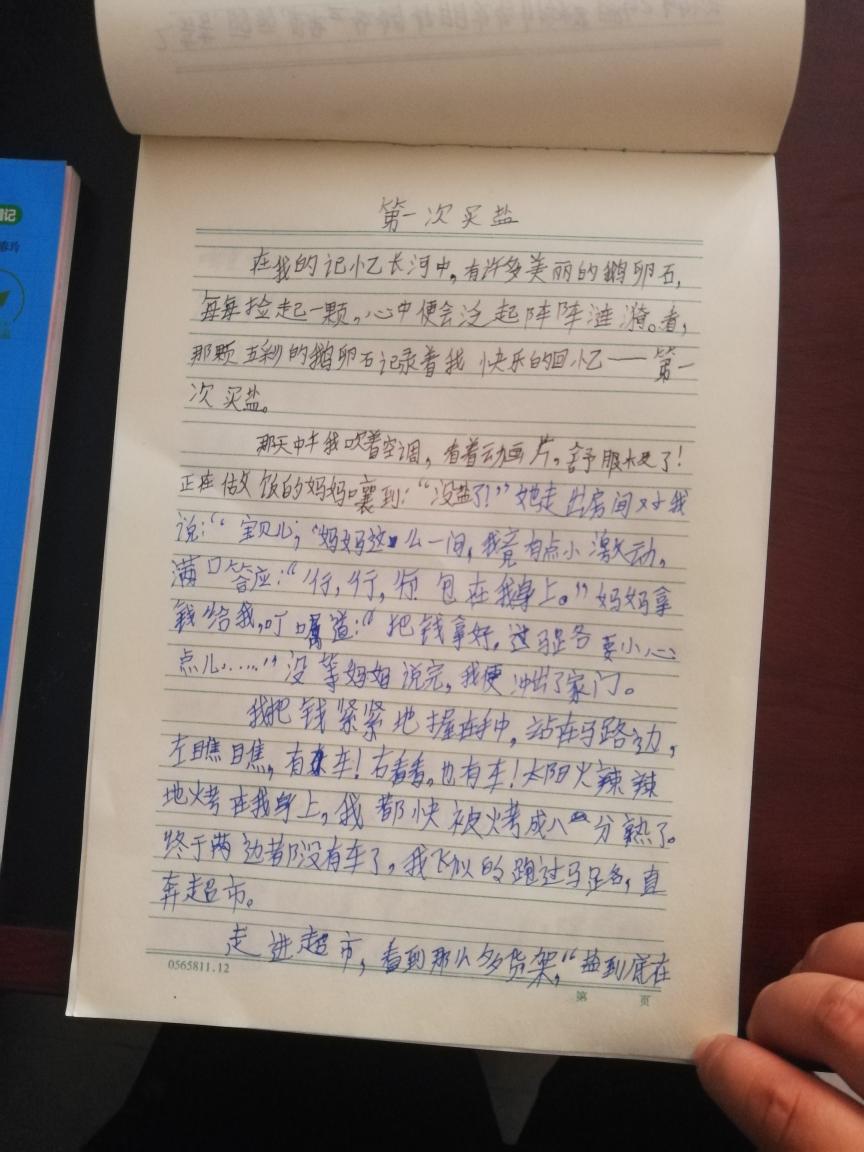 第一次买盐
在我的记忆长河中,有许多美丽的鹅卵石,
每每捡起一颗,心中便会泛起阵阵涟漪。看,
那颗五彩的鹅卵石记录着我快乐的回忆——第一
次买盐。
那天中午我吹着空调,看着动画片,舒服极了!
正在做饭的妈妈嚷到:“没盐了!”她走出房间对我
说:“宝贝儿,“妈妈这么一问,我竟有点小激动,
满口答应:“行,行,行!包在我身上。”妈妈拿
钱给我,叮嘱道:“把钱拿好,过马路要小心
点儿……”没等妈妈说完,我便冲出了家门。
我把钱紧紧地握在手中,站在马路边,
左瞧瞧,有车!右看看,也有车!太阳火辣辣
地烤在我身上,我都快被烤成八分熟了。
终于两边都没有车了,我飞似的跑过马路,直
奔超市。
走进超市,看到那么多货架,“盐到底在
0565811.12
第 页
记